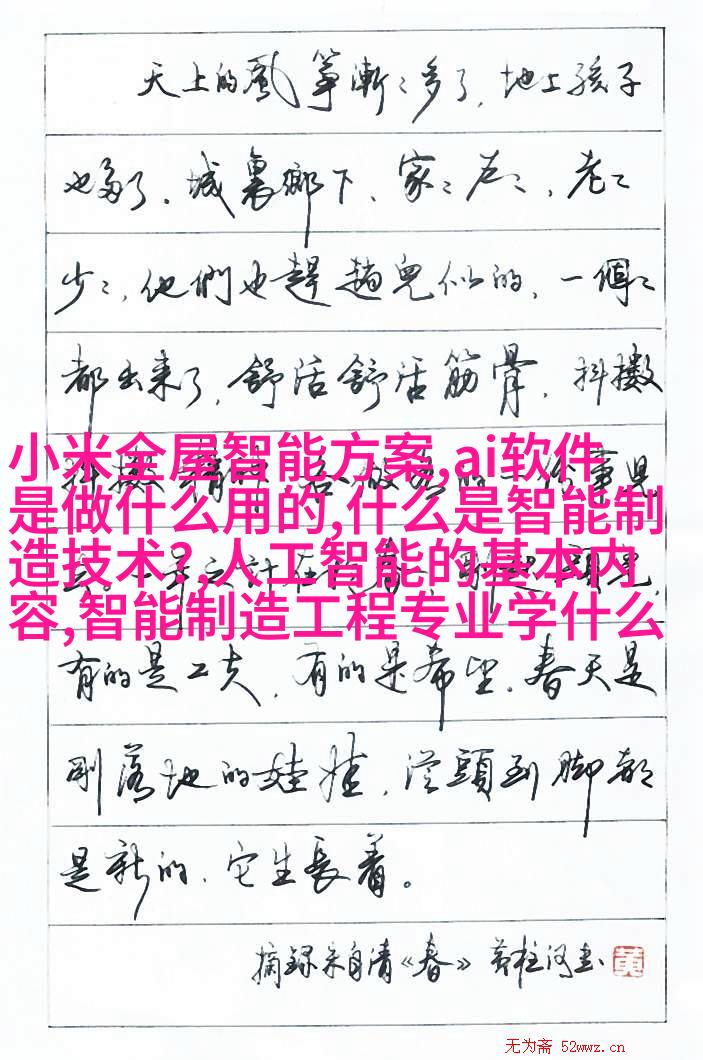 天上的風箏漸〻多了，地上孩子
也多了。城裏鄉下、家〻户〻，老〻
少〻，他們也趕趟兒似的，一個〻
都出来了，舒活舒活筋骨，抖擻
小米全屋智能方案,ai软件
是做什么用的,什么是智能制
造技术?,人工智能的基本内
容,智能制造工程专业学什么
有的是工夫，有的是希望。春天是
剛落地的娃娃，從頭到脚都
是新的，它生長着。
摘録朱自清《春》 黄柱河书
黄
无为斋 52wwz.cn